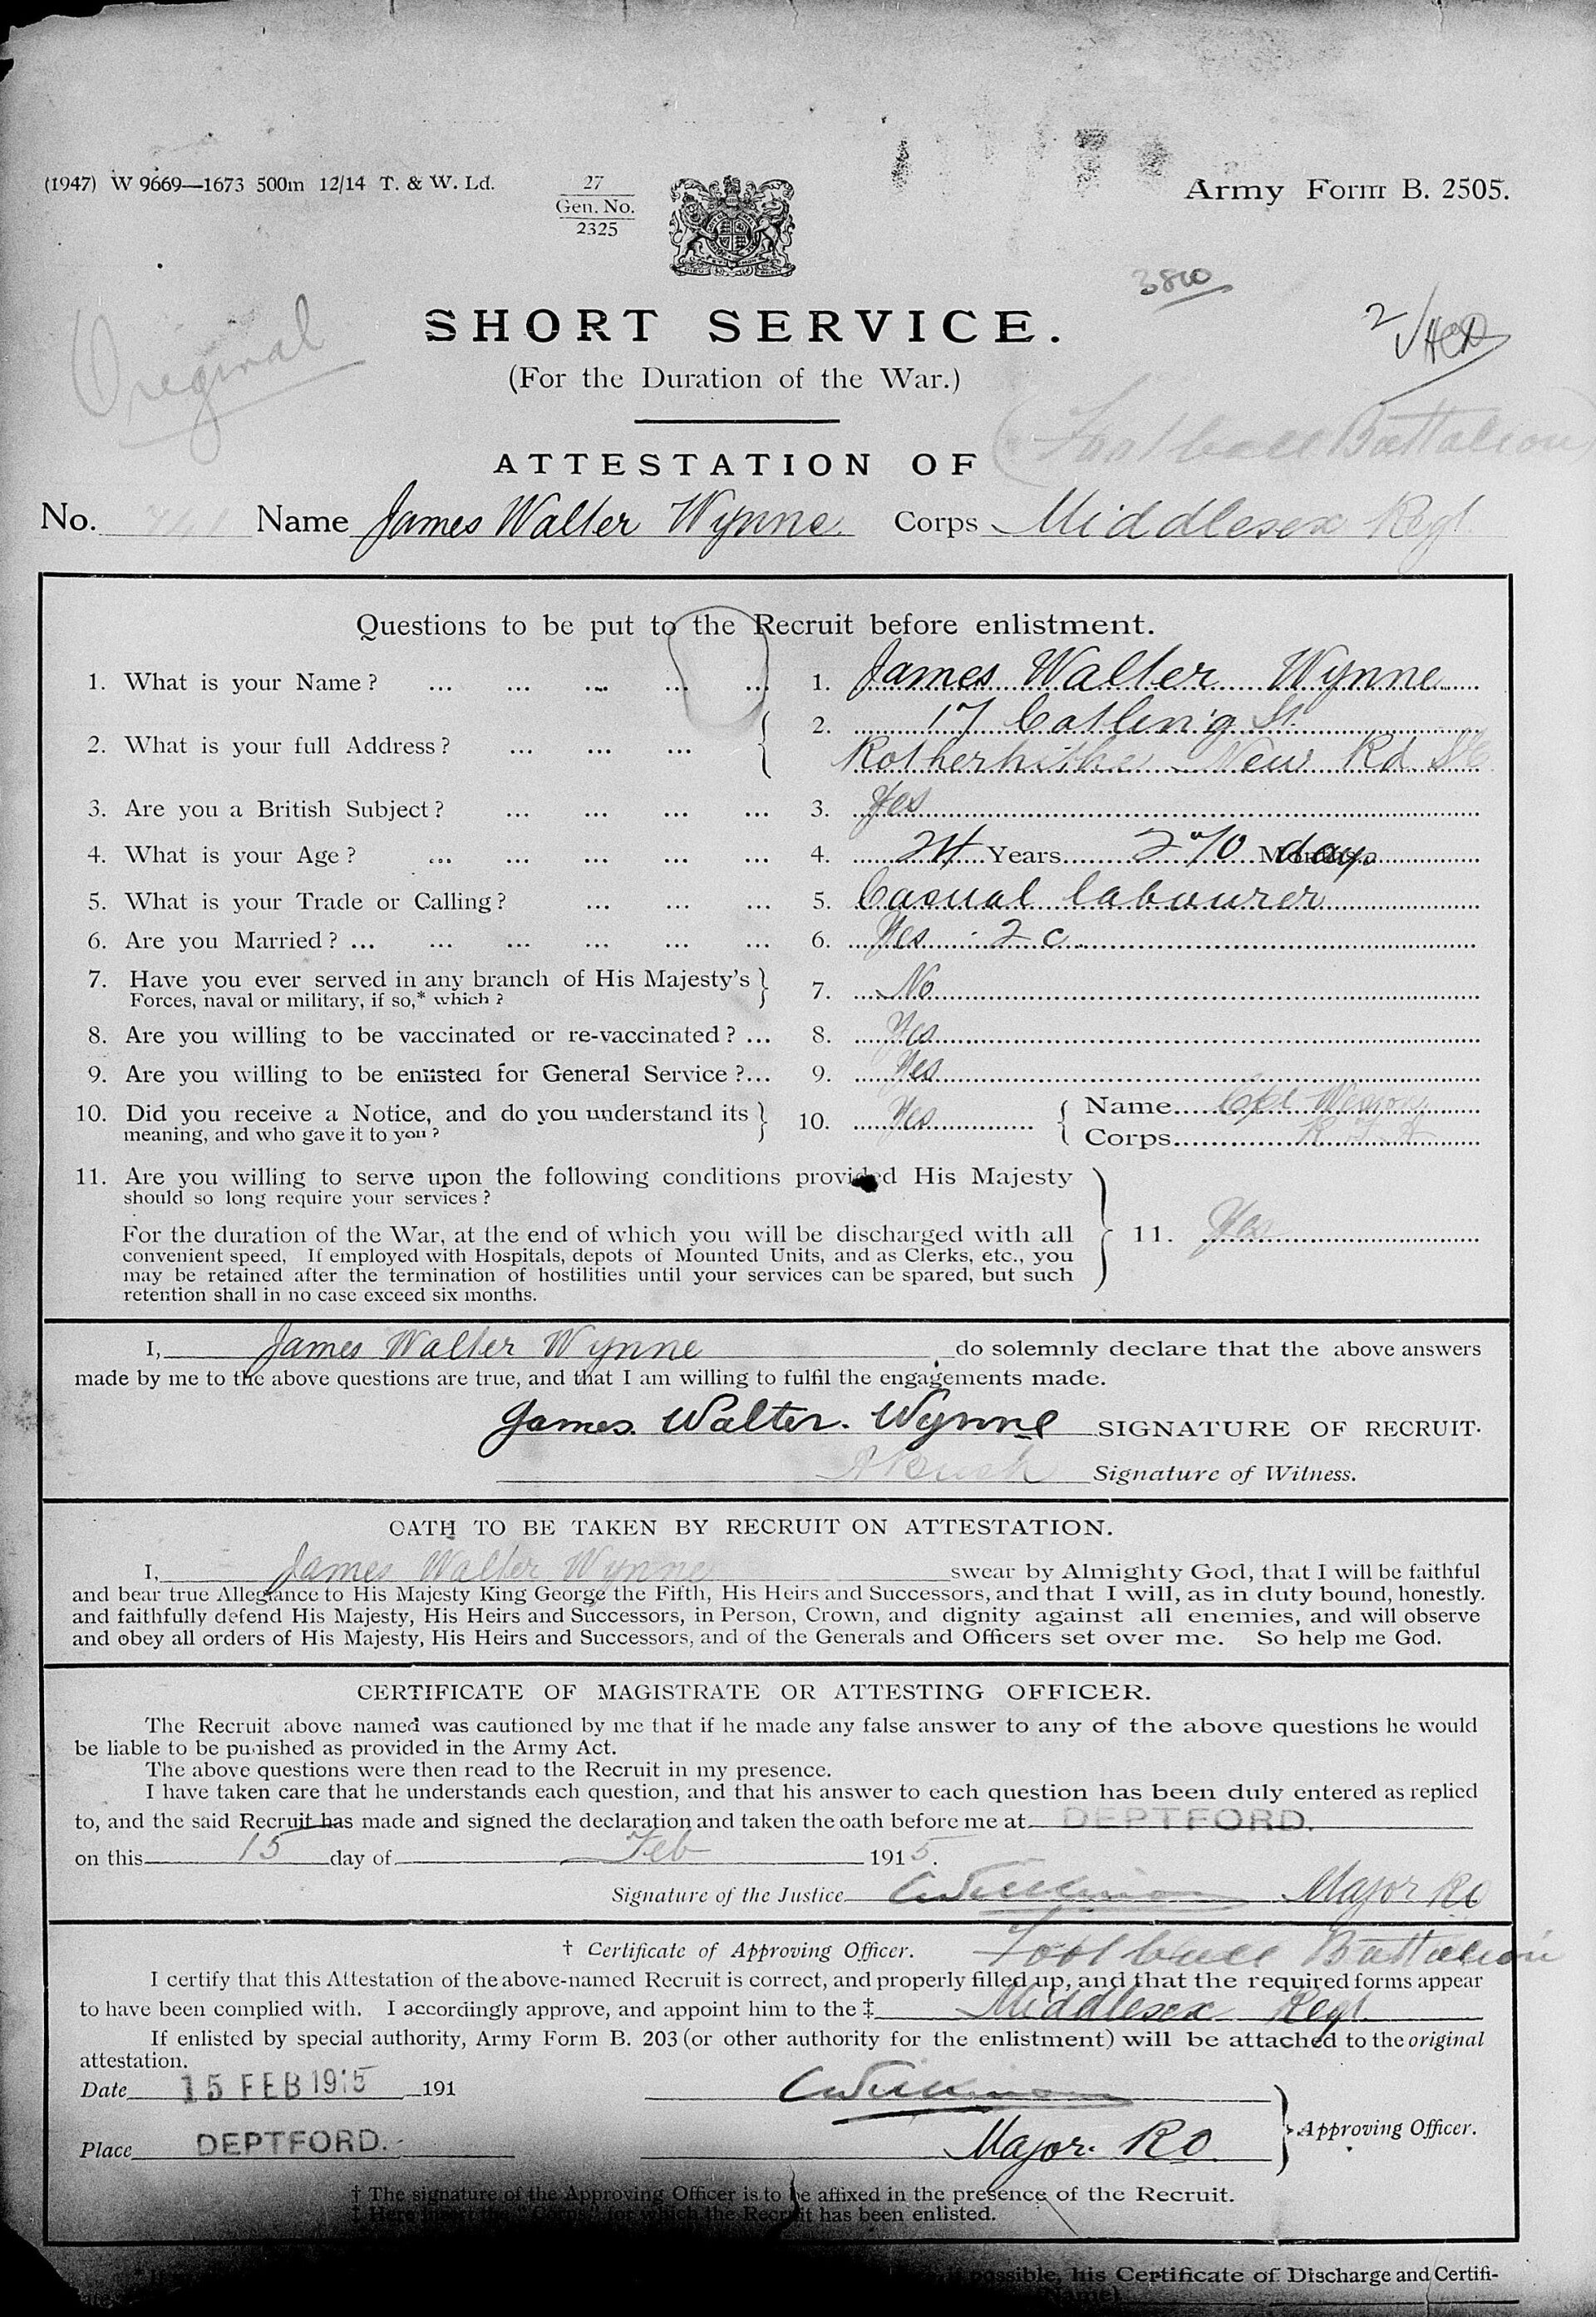 (1947) W 9669—1673 500m 12/14 T. & W. Ld.
27
Gen. No.
2325
Army Form B. 2505.
Original
SHORT SERVICE.
(For the Duration of the War.)
(Football Battalion)
ATTESTATION OF
No. 741 Name James Walter Wynne Corps Middlesex Regt.
Questions to be put to the Recruit before enlistment.
1. What is your Name? ... ... ... ... ... 1. James Walter Wynne
2. What is your full Address? ... ... ... 2. 17 Catling St.
Rotherhithe New Rd SE
3. Are you a British Subject? ... ... ... ... 3. Yes
4. What is your Age? ... ... ... ... ... 4. 24 Years 270 Months days
5. What is your Trade or Calling? ... ... ... 5. Casual labourer
6. Are you Married? ... ... ... ... ... ... 6. Yes 2 c
7. Have you ever served in any branch of His Majesty's
Forces, naval or military, if so,* which? 7. No
8. Are you willing to be vaccinated or re-vaccinated? ... 8. Yes
9. Are you willing to be enlisted for General Service?... 9. Yes
10. Did you receive a Notice, and do you understand its
meaning, and who gave it to you? 10. Yes Name Cpl
Corps R F A
11. Are you willing to serve upon the following conditions provided His Majesty
should so long require your services?
For the duration of the War, at the end of which you will be discharged with all 11. Yes
convenient speed, If employed with Hospitals, depots of Mounted Units, and as Clerks, etc., you
may be retained after the termination of hostilities until your services can be spared, but such
retention shall in no case exceed six months.
I, James Walter Wynne do solemnly declare that the above answers
made by me to the above questions are true, and that I am willing to fulfil the engagements made.
James. Walter. Wynne SIGNATURE OF RECRUIT.
A Buck Signature of Witness.
OATH TO BE TAKEN BY RECRUIT ON ATTESTATION.
I, James Walter Wynne swear by Almighty God, that I will be faithful
and bear true Allegiance to His Majesty King George the Fifth, His Heirs and Successors, and that I will, as in duty bound, honestly.
and faithfully defend His Majesty, His Heirs and Successors, in Person, Crown, and dignity against all enemies, and will observe
and obey all orders of His Majesty, His Heirs and Successors, and of the Generals and Officers set over me. So help me God.
CERTIFICATE OF MAGISTRATE OR ATTESTING OFFICER.
The Recruit above named was cautioned by me that if he made any false answer to any of the above questions he would
be liable to be punished as provided in the Army Act.
The above questions were then read to the Recruit in my presence.
I have taken care that he understands each question, and that his answer to each question has been duly entered as replied
to, and the said Recruit has made and signed the declaration and taken the oath before me at DEPTFORD.
on this 15 day of Feb 1915.
Signature of the Justice Major RO
† Certificate of Approving Officer. Football Battalion
I certify that this Attestation of the above-named Recruit is correct, and properly filled up, and that the required forms appear
to have been complied with. I accordingly approve, and appoint him to the ‡ Middlesex Regt.
If enlisted by special authority, Army Form B. 203 (or other authority for the enlistment) will be attached to the original
attestation.
Date 15 FEB 1915 191
Place DEPTFORD. Major. RO Approving Officer.
† The signature of the Approving Officer is to be affixed in the presence of the Recruit.
‡ Here insert the "Corps" for which the Recruit has been enlisted.
if possible, his Certificate of Discharge and Certifi-